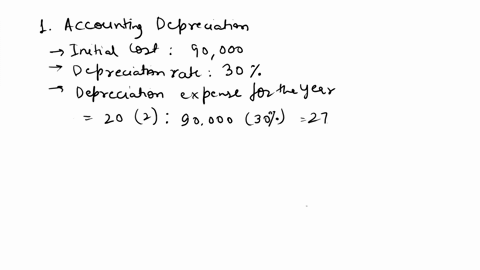 1. Accounting Depreciation
→ Initial Cost : 90,000
→ Depreciation rate : 30 %
→ Depreciation expense for the year
= 20 (2) : 90,000 (30%) = 27